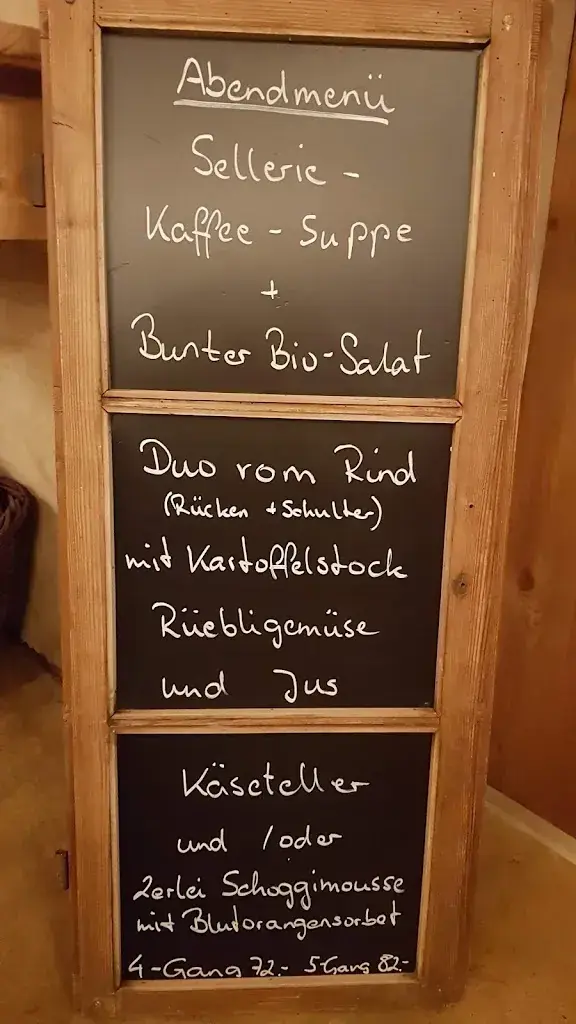 Abendmenü
Sellerie -
Kaffee - Suppe
+
Bunter Bio-Salat
Duo vom Rind
(Rücken + Schulter)
mit Kartoffelstock
Rüebligemüse
und Jus
Käseteller
und / oder
2erlei Schoggimousse
mit Blutorangensorbet
4-Gang 72.- 5-Gang 82.-